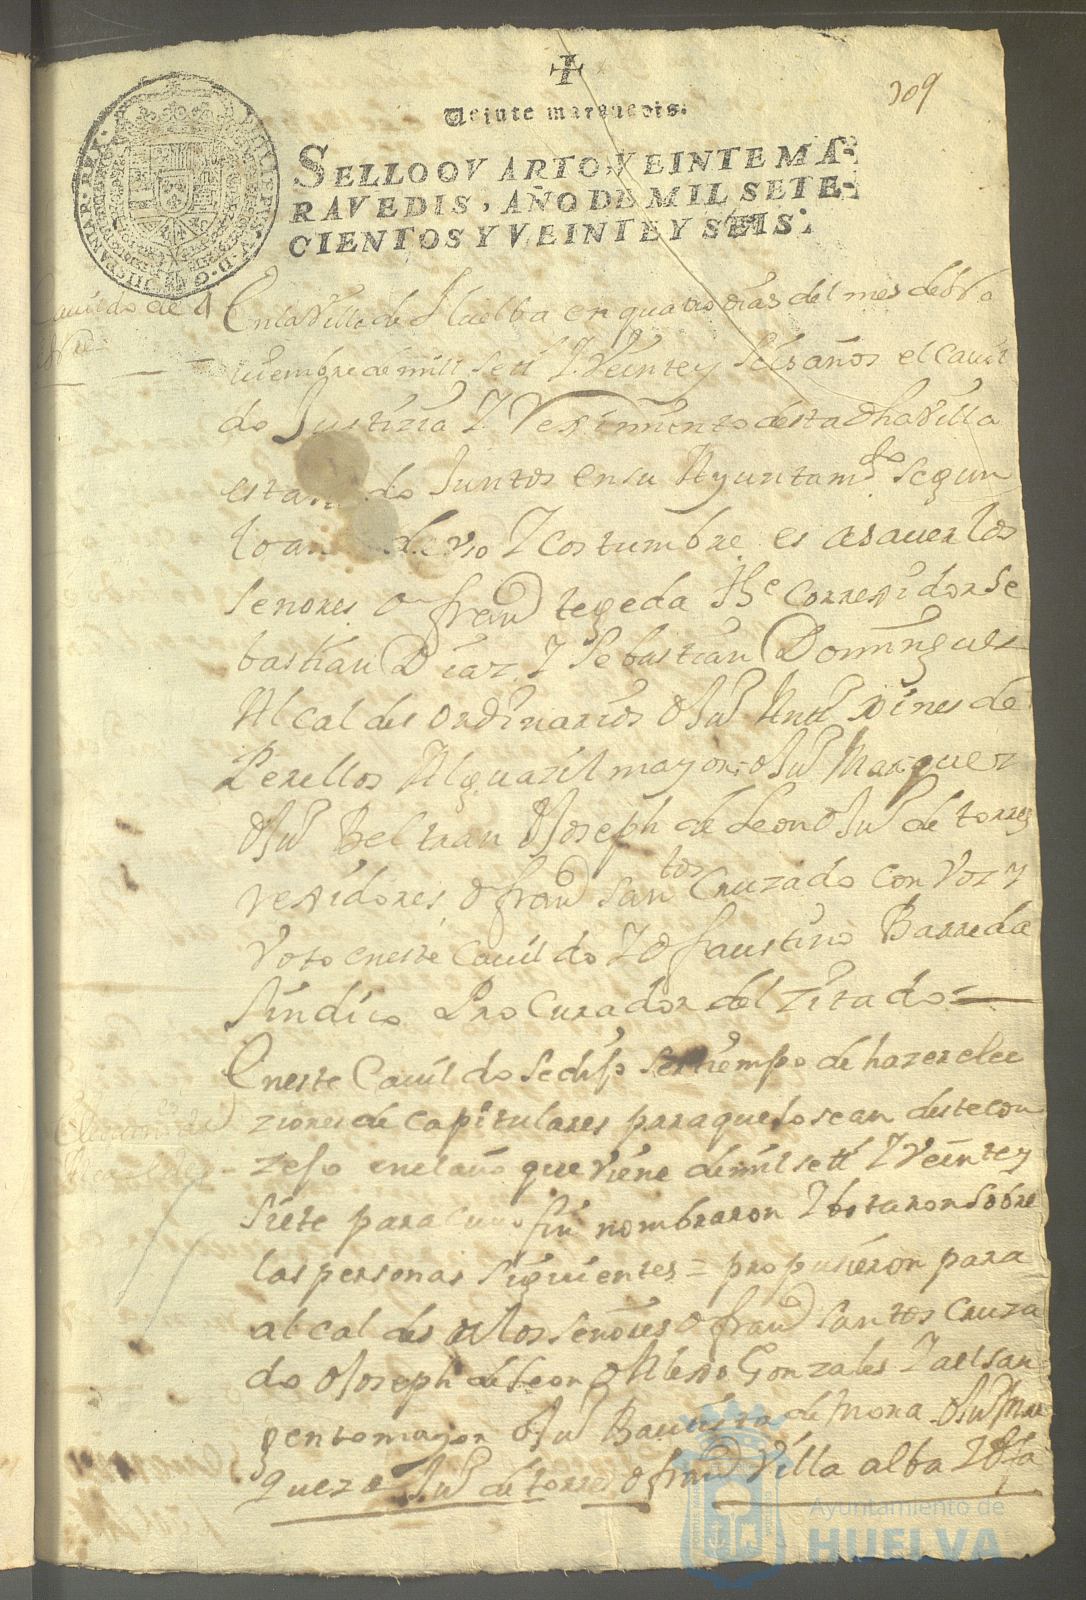 309
Veinte marauedis.
SELLO QVARTO, VEINTE MA-
RAVEDIS, AÑO DE MIL SETE-
CIENTOS Y VEINTE Y SEIS.
PHILIPPUS V D G HISPANIAR REX
Cauildo de 4
En la Villa de Huelba en quatro dias del mes de No
uiembre de mill sett Y Veinte y seis años el Cauil
do Justizia Y Reximiento desta dha Villa
estando Juntos en su Ayuntamto segun
lo an de vso Y costumbre es a sauer los
senores Dn franco tegeda The Correxidor Se
bastian Diaz Y Sebastian Dominguez
Alcaldes ordinarios D Ju Antt Xines de
Perellos Alguazil mayor D Ju Marquez
D Ju Beltran D Joseph de Leon D Ju de torres
rexidores D franco Santos Cruzado con Voz Y
Voto en este Cauildo Y D faustino Barreda
Sindico Procurador del zitado =
En este Cauildo se dijo ser tiempo de hazer elec
Elecciones de
Alcaldes
ziones de capitulares para que lo sean deste con
zejo en el año que Viene de mil sett Y Veinte y
siete para cuyo fin nombraron Y botaron sobre
las personas siguientes = propusieron para
alcaldes a los senores D franco Santos Cruza
do D Joseph de Leon D Alexo Gonzales Y al san
gento mayor D Ju Bautista de Mora D Ju Mar
quez D Ju de torres D franco Villa alba Y D fa
Ayuntamiento de
HUELVA